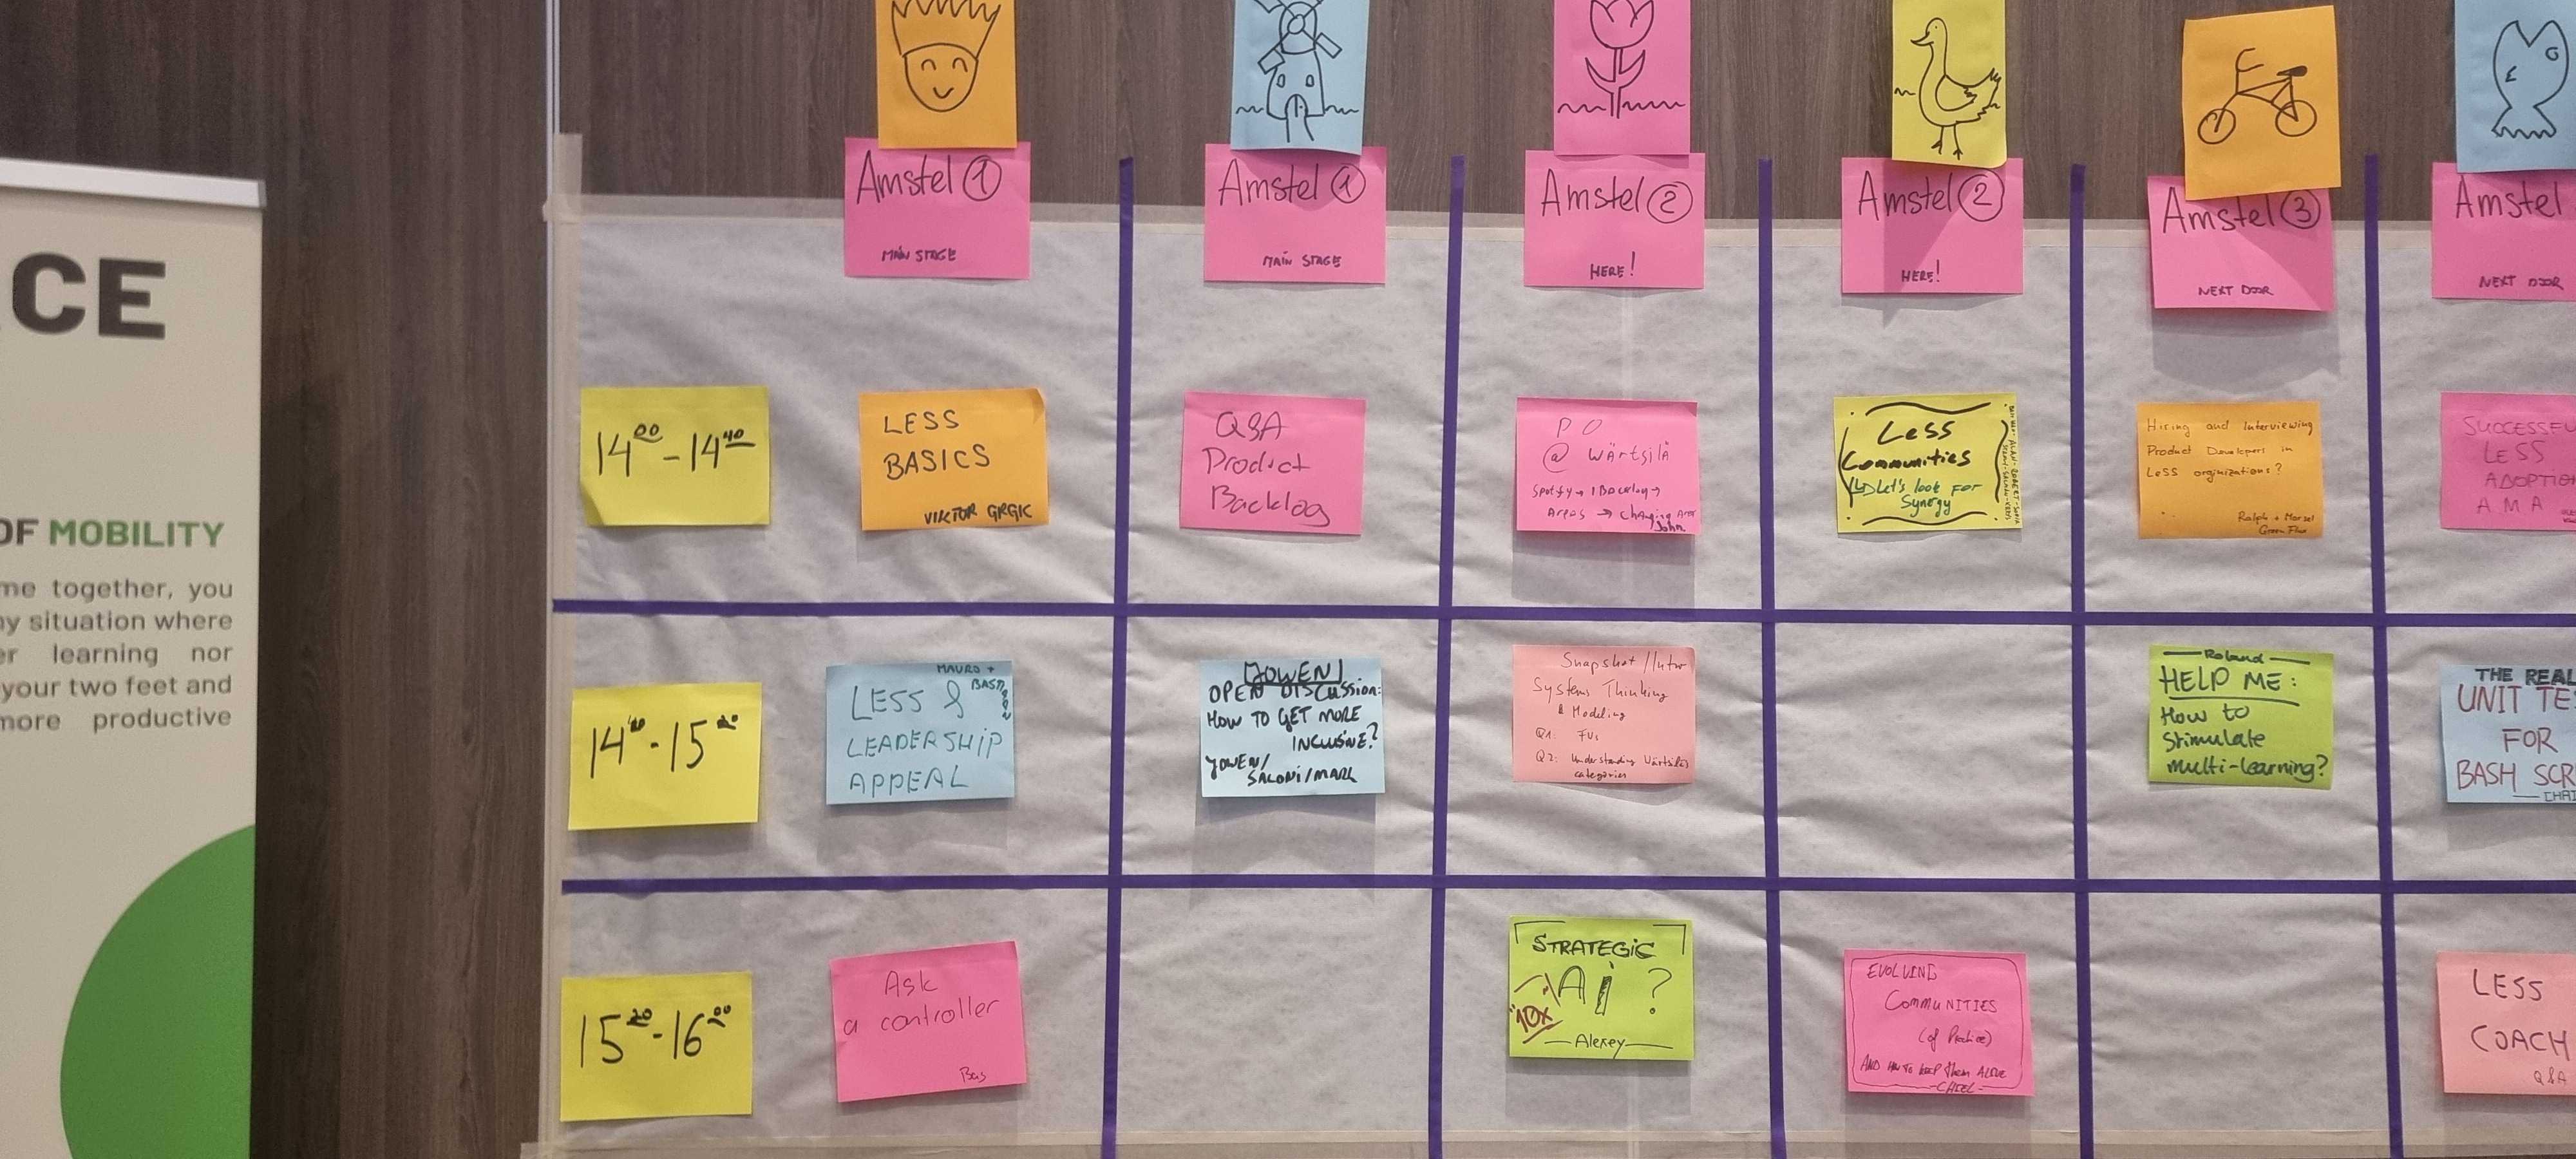 CE
OF MOBILITY
me together, you
y situation where
er learning nor
your two feet and
more productive
Amstel 1
MAIN STAGE
Amstel 1
MAIN STAGE
Amstel 2
HERE!
Amstel 2
HERE!
Amstel 3
NEXT DOOR
Amstel
NEXT DOOR
14 00 - 14 40
LESS
BASICS
VIKTOR GRGIC
Q&A
Product
Backlog
PO
@ WÄRTSILÄ
Spotify → 1 Backlog →
Areas → Changing
John
LeSS
Communities
Let's look for
Synergy
Hiring and Interviewing
Product Developers in
LeSS orginizations?
Ralph + Marsel
Green Flux
SUCCESSFU
LESS
ADOPTION
A.M.A
14 - 15 20
MAURO +
BAS
LESS &
LEADERSHIP
APPEAL
YOWEN
OPEN DISCUSSION:
HOW TO GET MORE
INCLUSINE?
YOWEN/
SALONI/MARK
Snapshot / Intro
Systems Thinking
& Modeling
Q1: FVs
Q2: Understanding Wärtsiläs
categories
Roland
HELP ME:
How to
Stimulate
multi-learning?
THE REAL
UNIT TES
FOR
BASH SCR
15 20 - 16 00
Ask
a controller
Bas
STRATEGIC
Ai ?
10x
Alexey
EVOLVING
COMMUNITIES
(of Practice)
AND HOW TO KEEP them ALIVE
- CHIEL -
LESS
COACH
Q&A